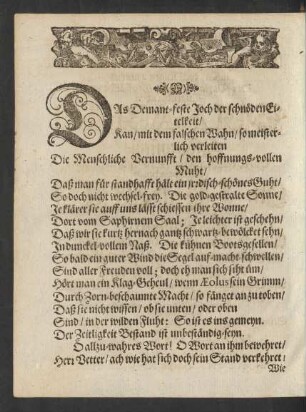 DAs Demant-feste Joch der schnöden Ei-
telkeit/
Kan/ mit dem falschen Wahn/ so meister-
lich verleiten
Die Menschliche Vernunfft/ den hoffnungs-vollen
Muht/
Daß man für standhafft hält ein irrdisch-schönes Guht/
So doch nicht wechsel-frey. Die gold-gestralte Sonne/
Je klärer sie auff uns läst schiessen ihre Wonne/
Dort vom Saphirnem Saal; Je leichter ist geschehn/
Daß wir sie kurtz hernach gantz schwartz-bewölcket sehn/
In dunckel-vollem Naß. Die kühnen Bootsgesellen/
So bald ein guter Wind die Segel auf-macht-schwellen/
Sind aller Freuden voll; doch eh man sich siht üm/
Hört man ein Klag-Geheul/ wenn Æolus sein Grimm/
Durch Zorn-beschaumte Macht/ so fänget an zu toben/
Daß sie nicht wissen/ ob sie unten/ oder oben
Sind/ in der wilden Fluht: So ist es ins gemeyn.
Der Zeitligkeit Bestand ist unbeständig-seyn.
O allzu-wahres Wort! O Wort an ihm bewehret/
Herr Vetter/ ach wie hat sich doch sein Stand verkehret!
Wie